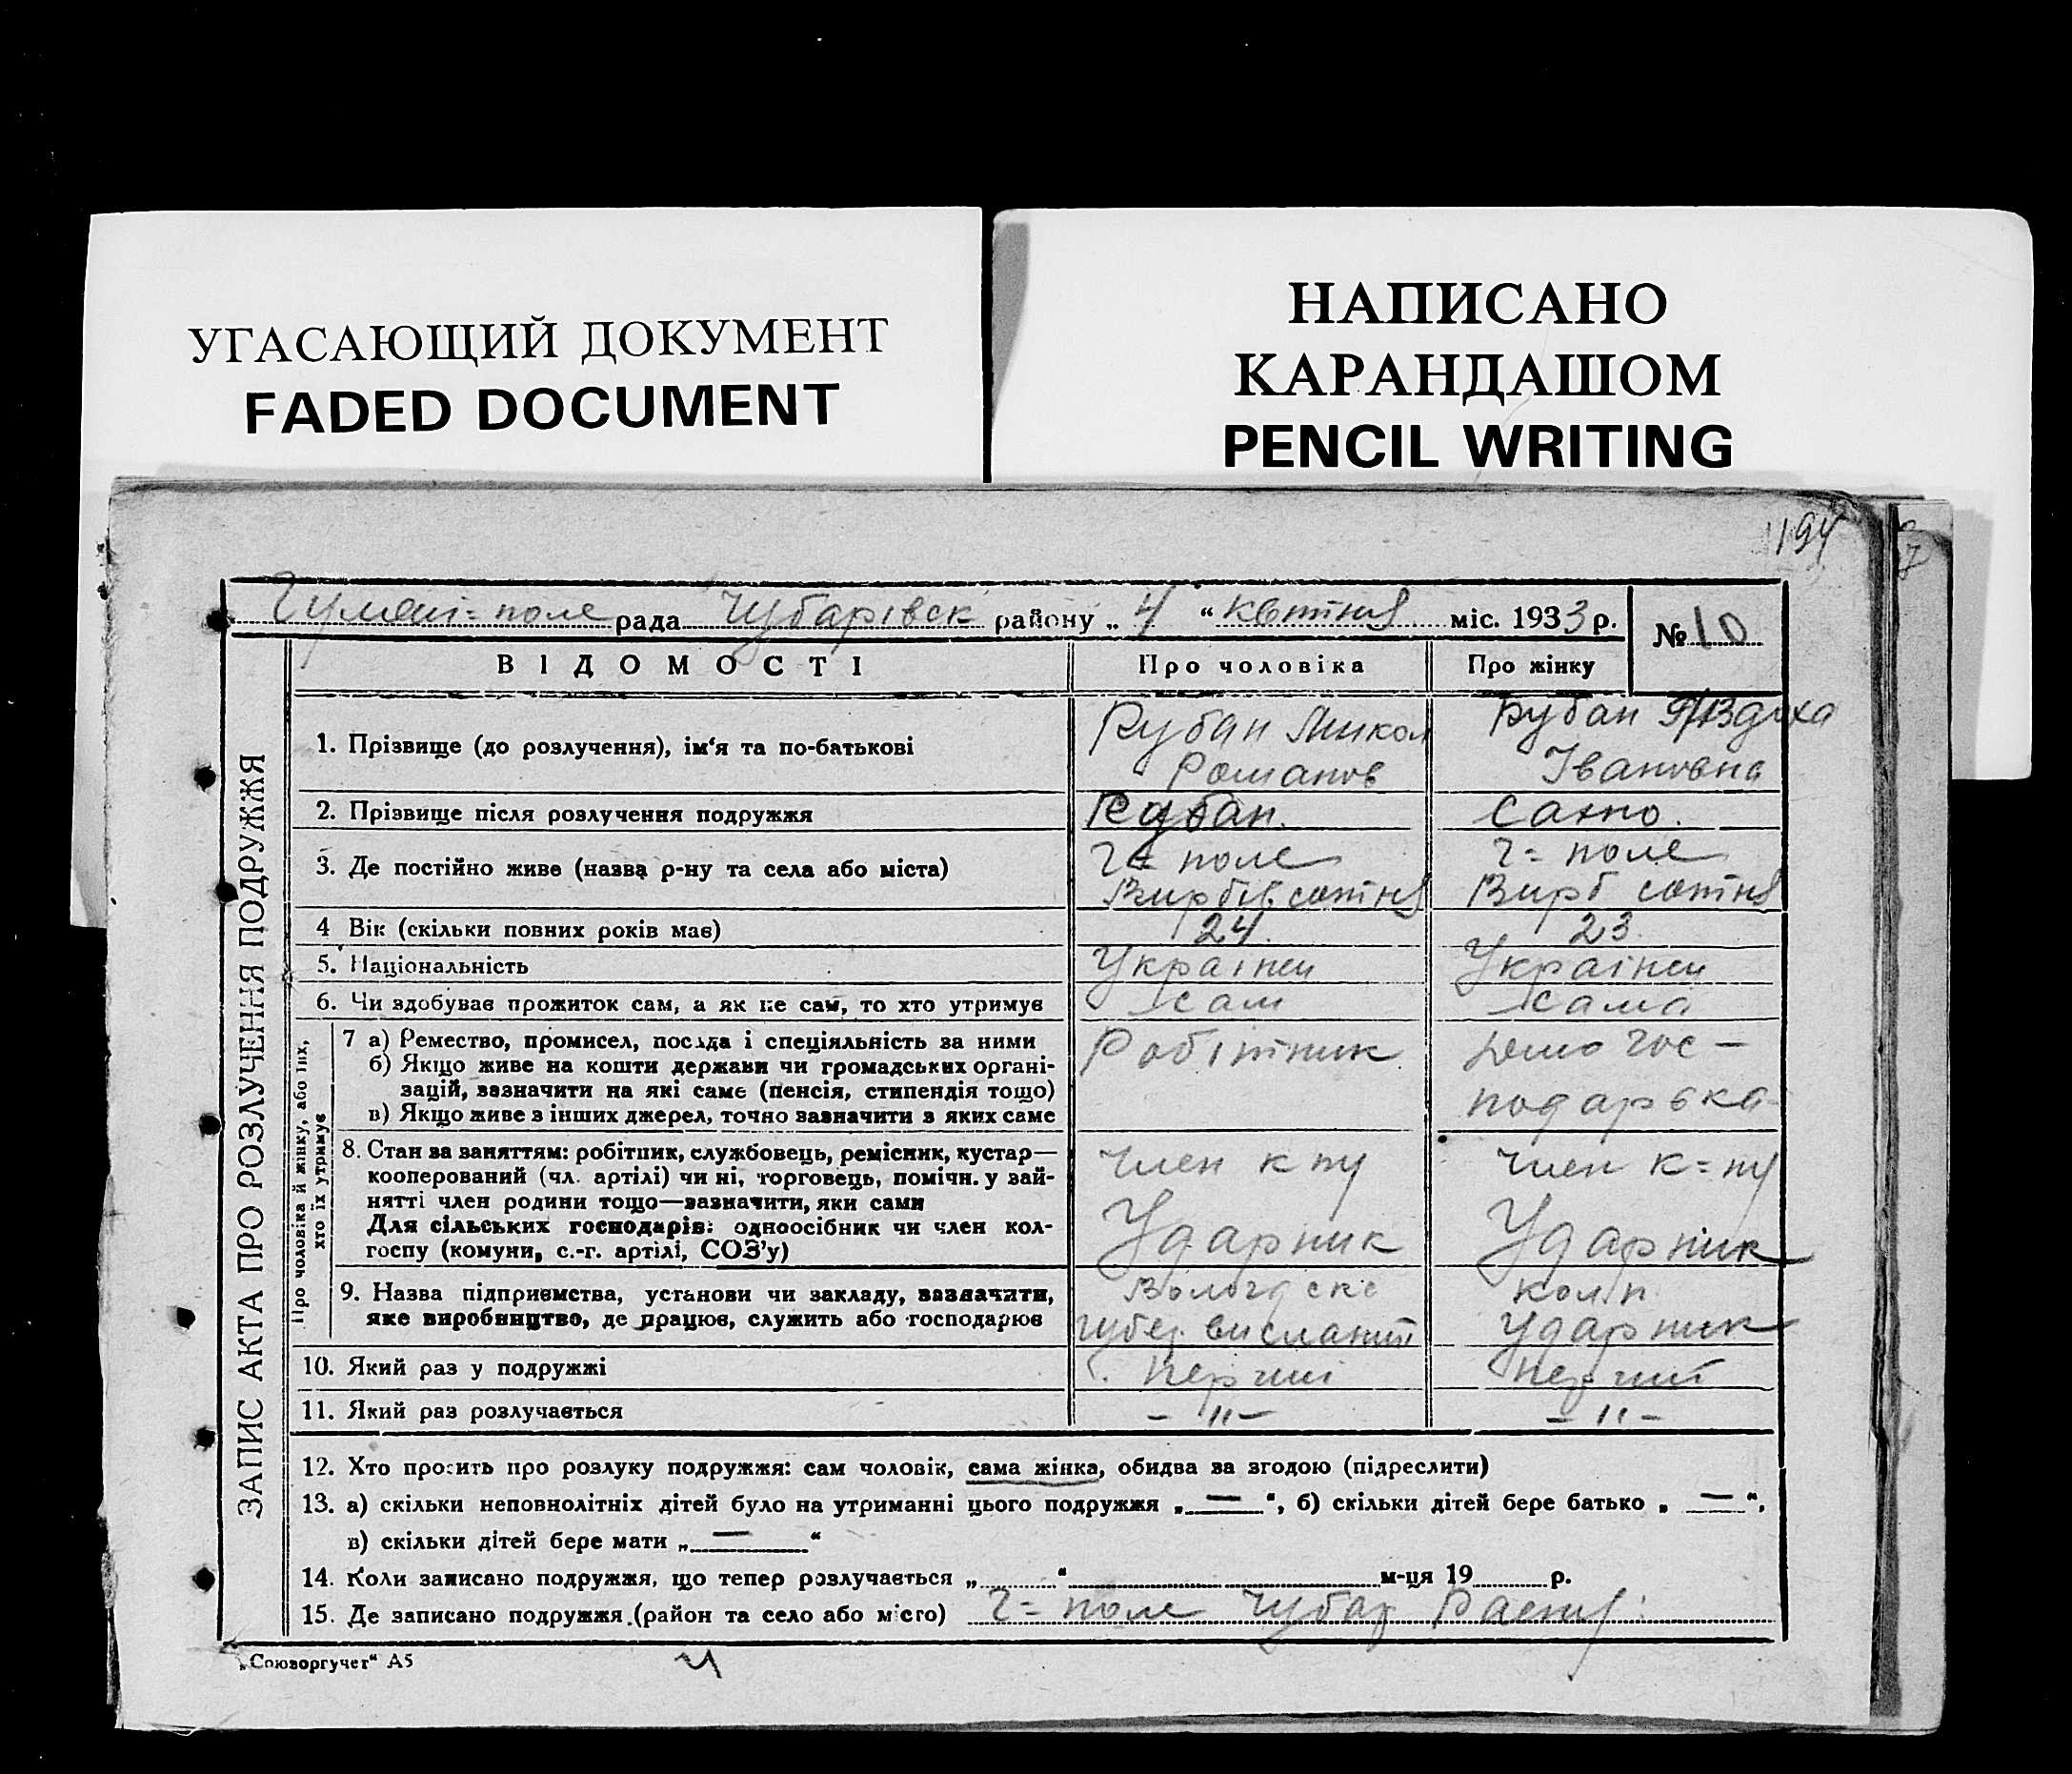 УГАСАЮЩИЙ ДОКУМЕНТ
FADED DOCUMENT
НАПИСАНО
КАРАНДАШОМ
PENCIL WRITING
194
Гуляй=поле рада Чубарівск району „ 4 “ квітня міс. 1933 р.
№ 10
ЗАПИС АКТА ПРО РОЗЛУЧЕННЯ ПОДРУЖЖЯ
ВІДОМОСТІ Про чоловіка Про жінку
1. Прізвище (до розлучення), ім‘я та по-батькові
Рубан Микол
Романов
Рубан Явдоха
Івановна
2. Прізвище після розлучення подружжя Рубан. Сахно.
3. Де постійно живе (назва р-ну та села або міста)
Г= поле
Вирбів сотня
Г= поле
Вирб сотня
4 Вік (скільки повних років має) 24. 23.
5. Національність Украінец Украінец
6. Чи здобуває прожиток сам, а як не сам, то хто утримує сам сама
Про чоловіка й жінку, або тих,
хто їх утримує
7 а) Ремество, промисел, посада і спеціяльність за ними
б) Якщо живе на кошти держави чи громадських органі-
зацій, зазначити на які саме (пенсія, стипендія тощо)
в) Якщо живе з інших джерел, точно зазначити з яких саме
Робітник
Домогос-
подарька
8. Стан за заняттям: робітник, службовець, ремісник, кустар—
кооперований (чл. артілі) чи ні, торговець, помічн. у зай-
нятті член родини тощо—зазначити, яки сами
Для сільських господарів: одноосібник чи член кол-
госпу (комуни, с.-г. артілі, СОЗ’у)
Член к пу
Ударник
Член к=пу
Ударник
9. Назва підприємства, установи чи закладу, зазначити,
яке виробництво, де працює, служить або господарює
Вологдскс
губер. висланий
кол/п
Ударник
10. Який раз у подружжі перший перший
11. Який раз розлучається – " – – " –
12. Хто просить про розлуку подружжя: сам чоловік, сама жінка, обидва за згодою (підреслити)
13. а) скільки неповнолітніх дітей було на утриманні цього подружжя „ — “, б) скільки дітей бере батько „ — “,
в) скільки дітей бере мати „ — “
14. Коли записано подружжя, що тепер розлучається „ “ м-ця 19 р.
15. Де записано подружжя (район та село або місто) Г= поле Чубар
„Союзоргучет“ А5